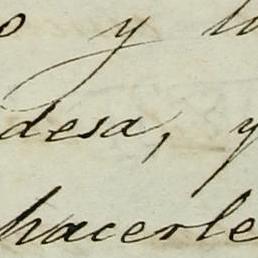 o y lo
desa, y
hacerle